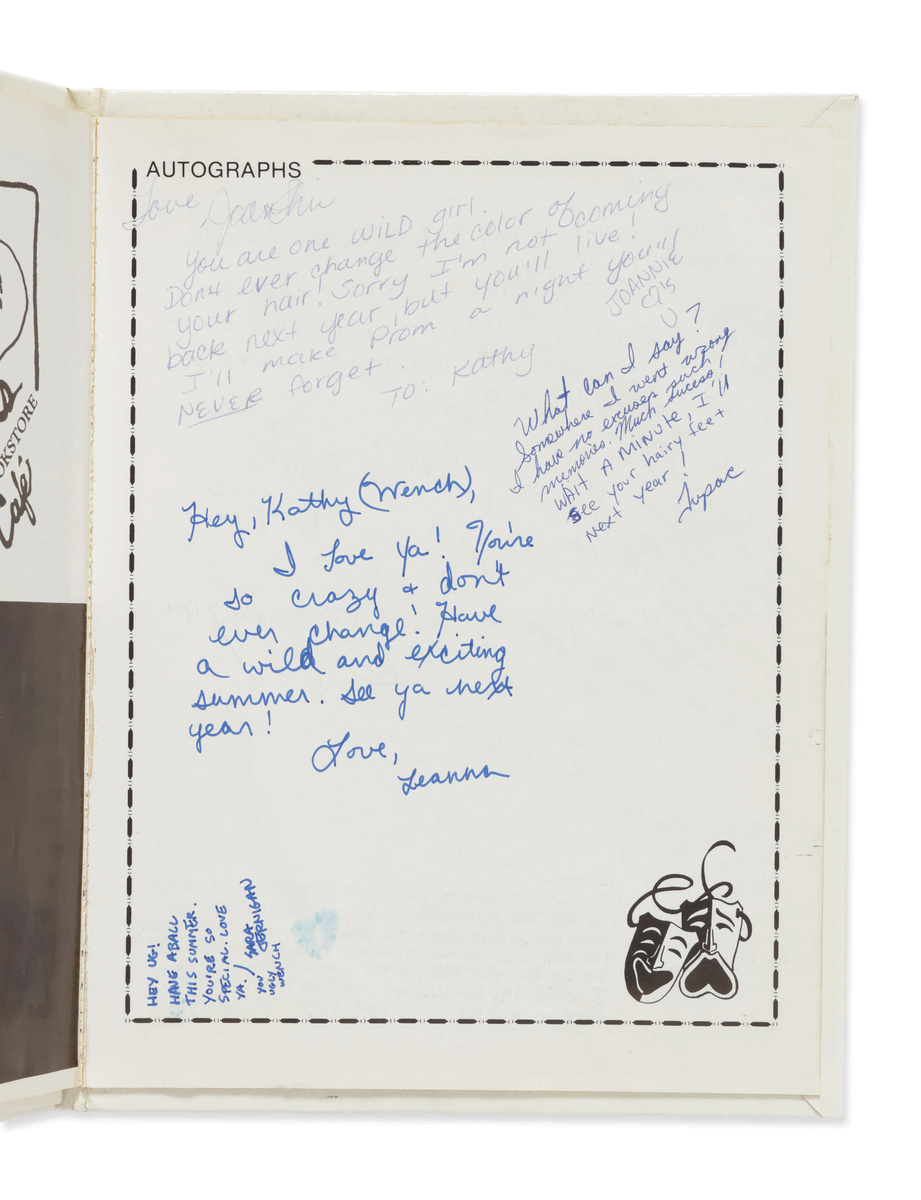 OKSTORE
Café
AUTOGRAPHS
Love
You are one WILD girl.
Don't ever change the color of
your hair! Sorry I'm not coming
back next year, but you'll live!
I'll make Prom a night you'll
NEVER forget.
To: Kathy
JOANNIE
U
What can I say?
Somewhere I went wrong
I have no excuses such
memories. Much sucess!
WAIT A MINUTE, I'll
See your hairy feet
Next year!
Tupac
Hey, Kathy (Wench),
I love ya! You're
so crazy & don't
ever change! Have
a wild and exciting
summer. See ya next
year!
Love,
Leanna
HEY UG!
HAVE A BALL
THIS SUMMER.
YOU'RE SO
SPECIAL. LOVE
YA, SARA
JERNIGAN
YOU
UGLY
WENCH